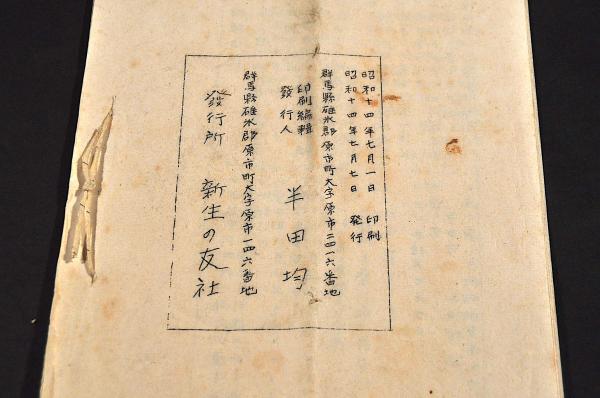 昭和十四年七月一日 印刷
昭和十四年七月七日 発行
群馬縣碓氷郡原市町大字原市二四一六番地
印刷編輯
發行人
半田均
群馬縣碓氷郡原市町大字原市一四六番地
發行所 新生の友社